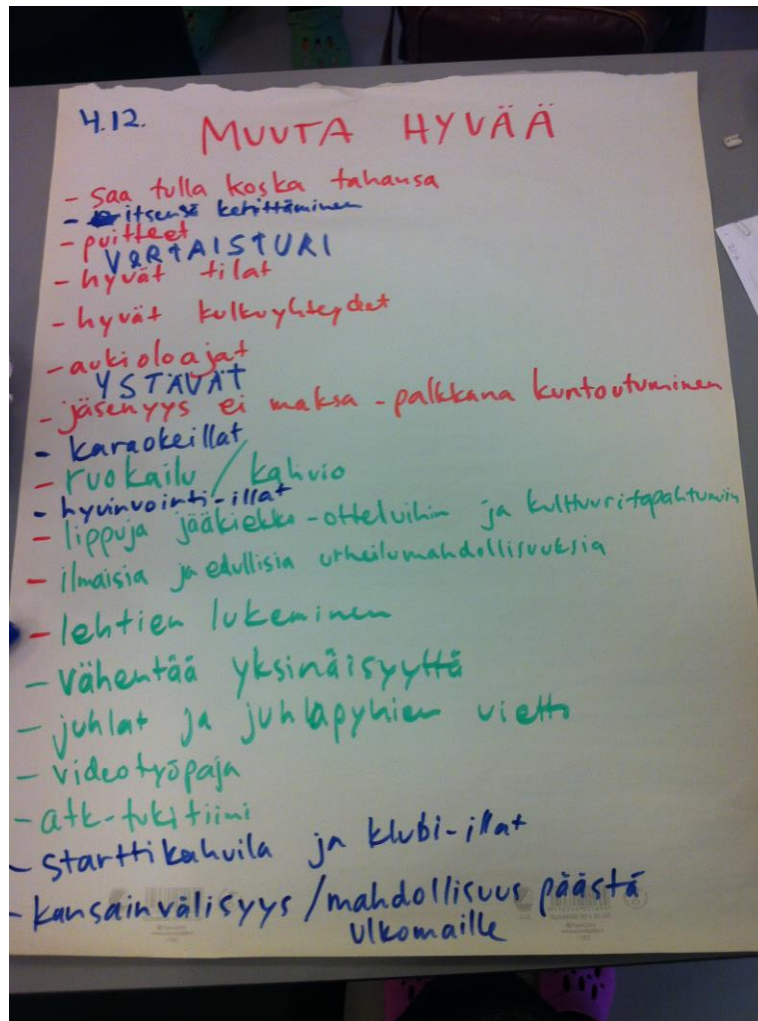 4.12. MUUTA HYVÄÄ
- saa tulla koska tahansa
- itsensä kehittäminen
- puitteet
VERTAISTUKI
- hyvät tilat
- hyvät kulkuyhteydet
- aukioloajat
YSTÄVÄT
- jäsenyys ei maksa - palkkana kuntoutuminen
- karaokeillat
- ruokailu / kahvio
- hyvinvointi-illat
- lippuja jääkiekko-otteluihin ja kulttuuritapahtumiin
- ilmaisia ja edullisia urheilumahdollisuuksia
- lehtien lukeminen
- vähentää yksinäisyyttä
- juhlat ja juhlapyhien vietto
- videotyöpaja
- atk-tukitiimi
- starttikahvila ja klubi-illat
- kansainvälisyys / mahdollisuus päästä
ulkomaille